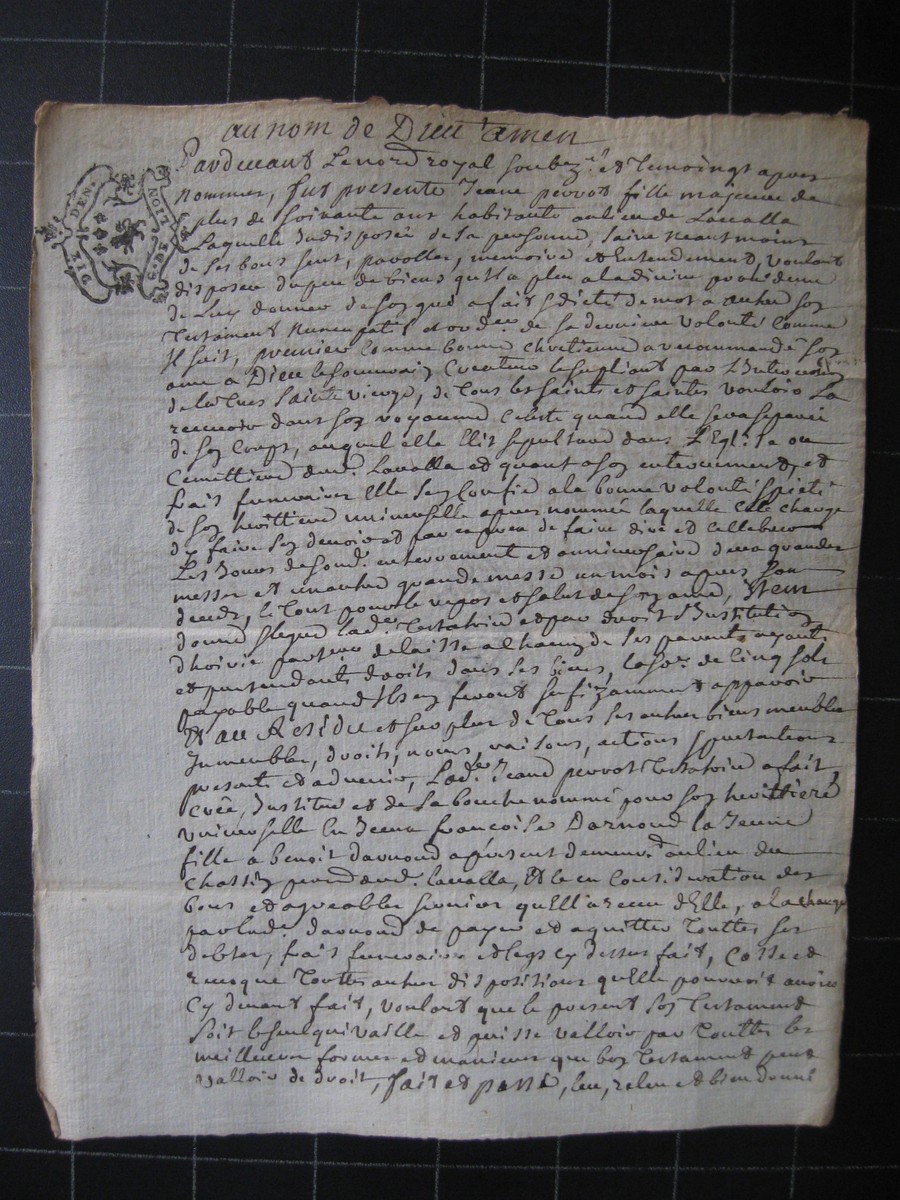 au nom de Dieu amen
Pardevant Le no.re royal soubz.né et temoingt apres
nommer, fut presente Jeane perrot fille majeure de
plus de soixante ans habitante au lieu de Lavalla
Laquelle Indisposée de sa personne, saine neantmoins
de ses bons sens, parolles, memoire et Entendement, voulant
disposer du peu de biens qu'il a pleu a la divine providence
de Luy donner de soy gré a fait & dicté de mot a autre soy
Testament nuncupatif et ordre de sa derniere volonté Comme
Il suit, premier comme bonne chretienne a recommandé soy
ame a Dieu le souveraiy Createur le supliant par L'Intercession
de la tres sainte vierge, de tous les saints et saintes vouloir La
recevoir dans soy royaume Celeste quand elle sera separée
de soy Corps, auquel elle Elit sepulture dans L'Eglise ou
Cemettiere dud. Lavalla et quant a soy enterrement, et
frais funeraires Elle s'ey Confie a la bonne volonté & pieté
de soy herittiere universelle apres nommée laquelle Elle charge
d'y faire sey devoir et par exprés de faire dire et cellebrer
Les jours de sond. enterrement et anniversaire deux grandes
messes et un autre grande messe un mois apres son
decedz, le tout pour le repos et salut de soy ame, Item
donne & legue lad.e Testatrice et par droit d'Institutioy
d'hoirie particu.re delaisse a Chacuy de ses parents ayants
et pretendants droits dans ses biens, la so.e de Cinq sols
payable quand Ils ey feront suffizamment apparoir
Et au Residu et surplus de tous ses autres biens meubles
Immeubles, droits, noms, raisons, actions & pretentions
present et advenir, Lad.e Jeane perrot Testatrice a fait,
créé, Institué et de sa bouche nommé pour soy herittiere
universelle Ln Jeane francoise Darnoud la Jeune
fille a benoit darnoud apresent demeur.t au lieu du
Chassiy par.se dud. Lavalla, Et le en Consideration des
bons et agreables services qu'Ell'a receu d'Elle, a la charge
par lad.e darnoud de payer et aquitter Touttes ses
debtes, frais funeraires et legs cy dessus fait, Casse et
revoque Touttes autres dispositions qu'elle pourroit avoir
Cy devant fait, voulant que le present soy Testament
soit le seul qui vaille et puisse valloir par Touttes les
meilleures formes et manieres que boy Testament peut
valloir de droit, fait et passé, leu, releu et bien donné
DIZ DEN.
GEN LION